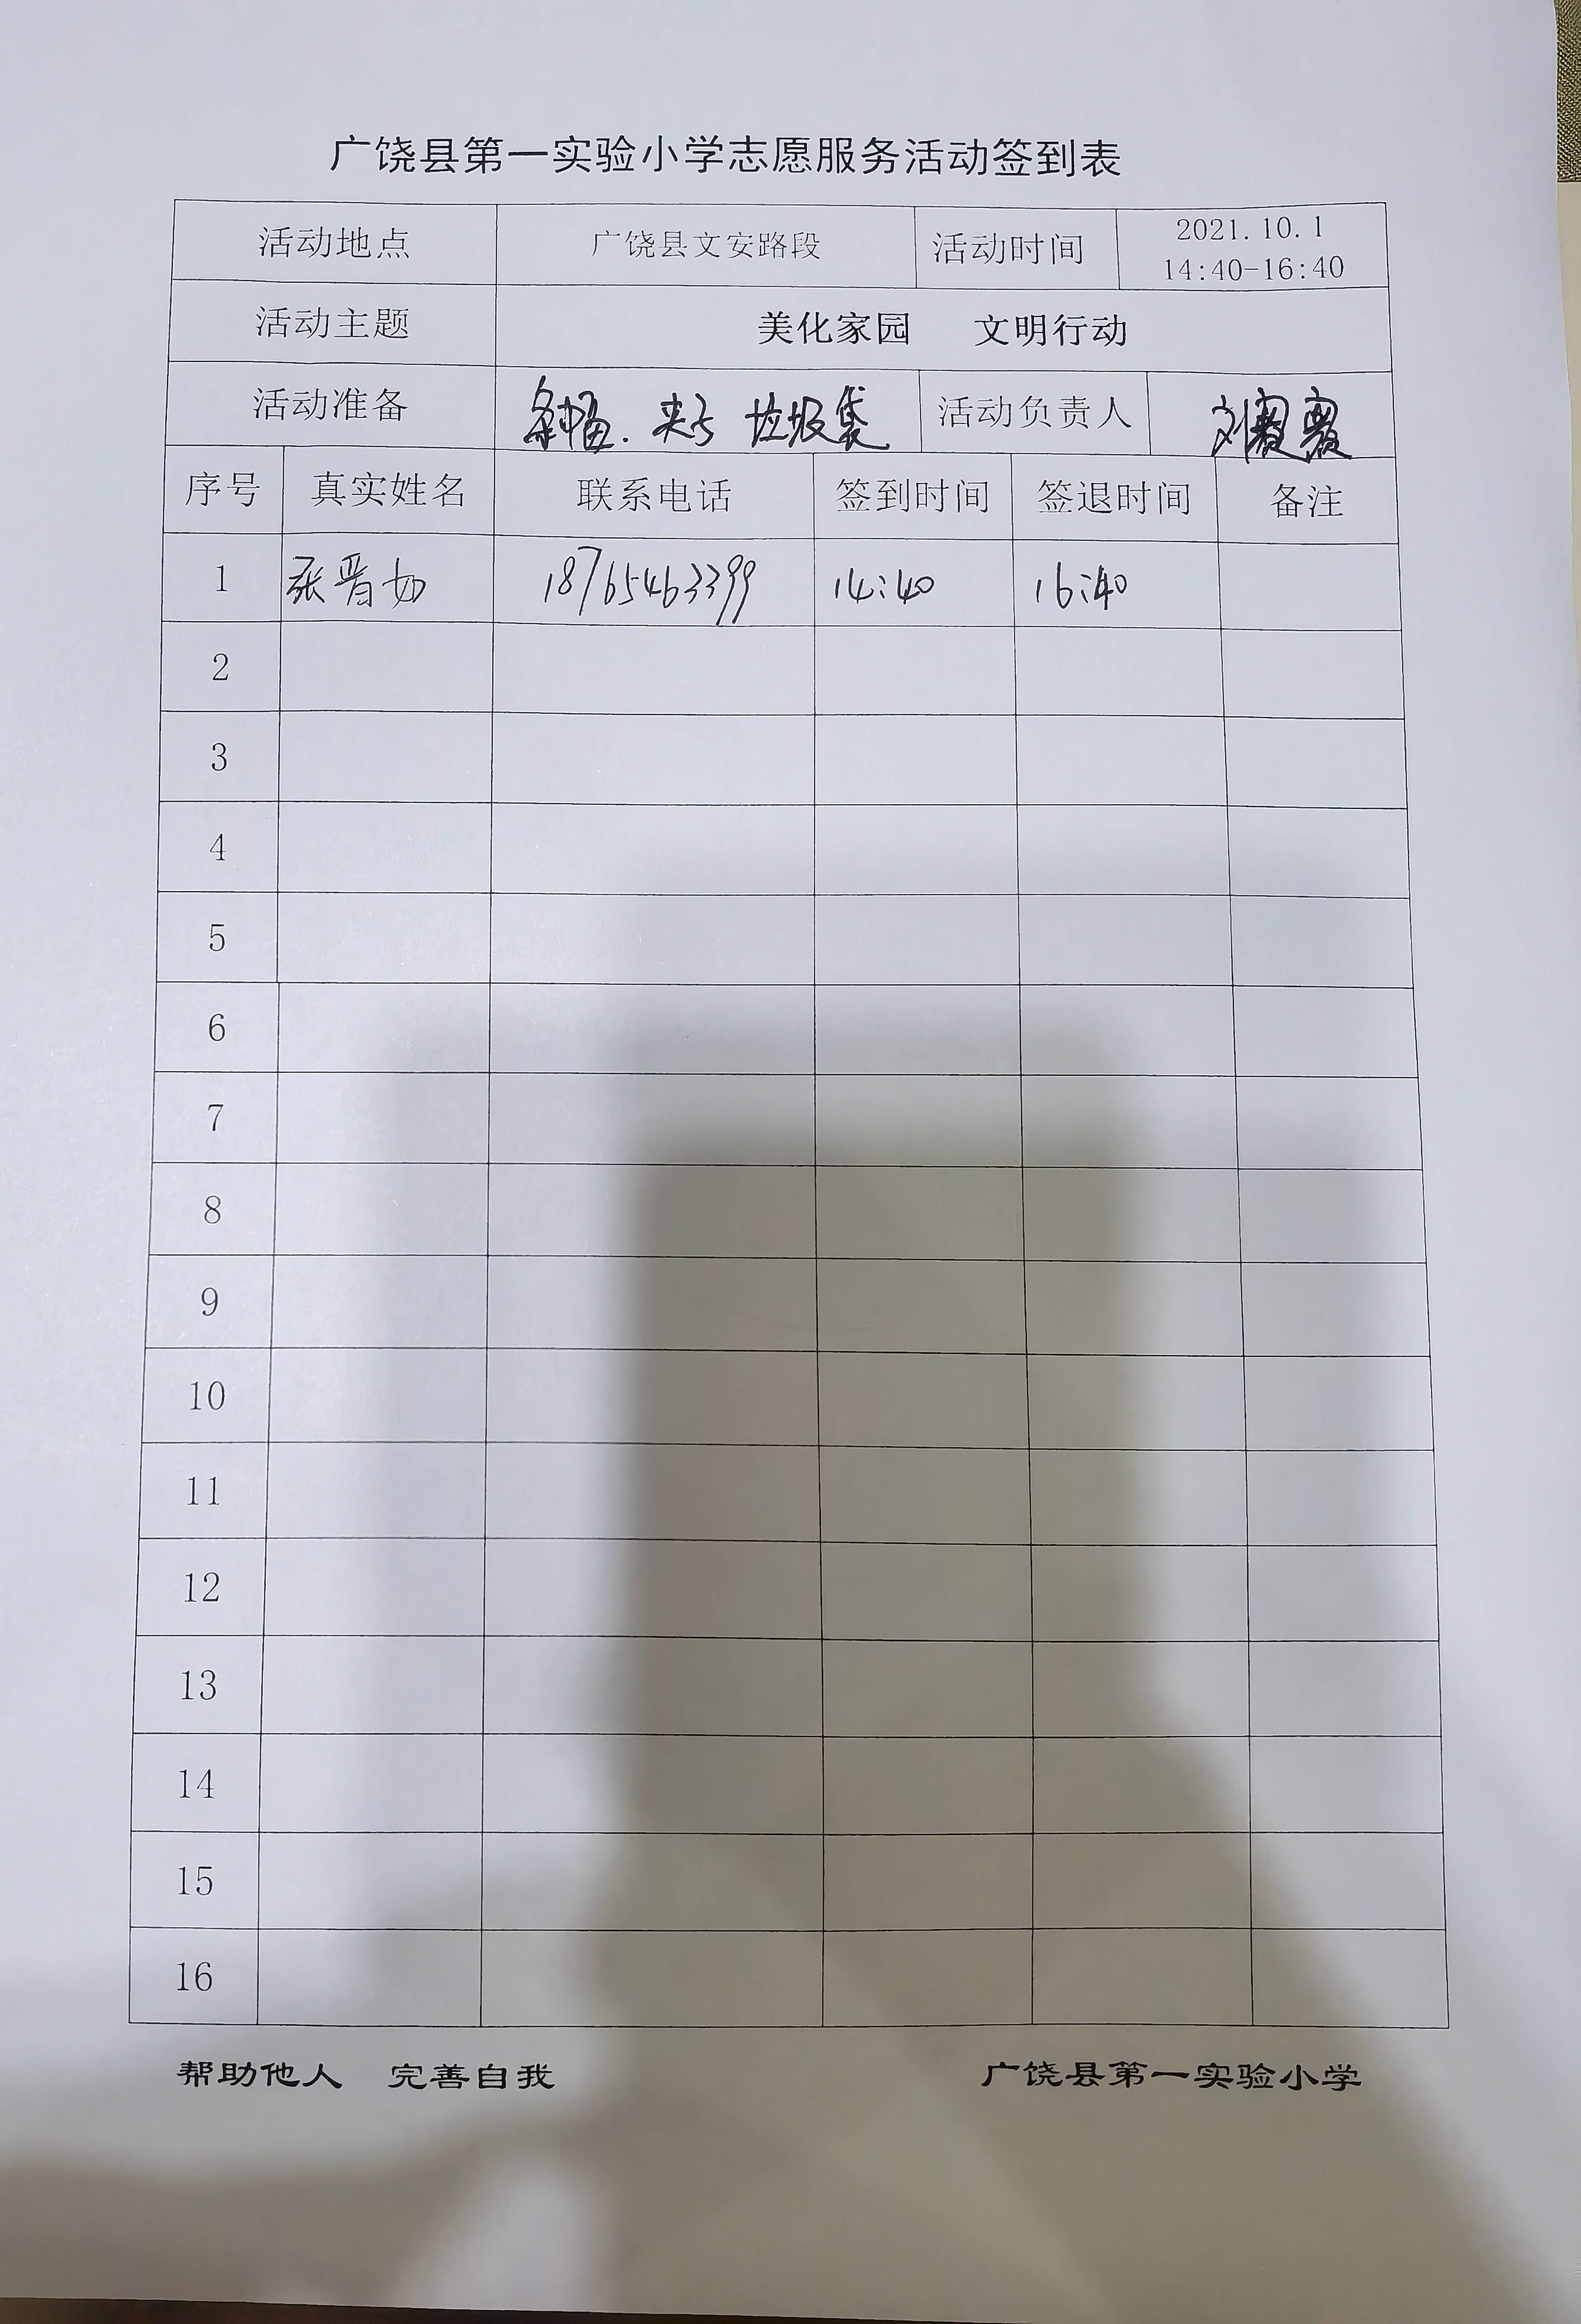 广饶县第一实验小学志愿服务活动签到表
活动地点 广饶县文安路段 活动时间 2021.10.1
14:40-16:40
活动主题 美化家园 文明行动
活动准备 条幅. 夹子 垃圾袋 活动负责人 刘霞霞
序号 真实姓名 联系电话 签到时间 签退时间 备注
1 张晋如 18765463399 14:40 16:40
2
3
4
5
6
7
8
9
10
11
12
13
14
15
16
帮助他人 完善自我 广饶县第一实验小学